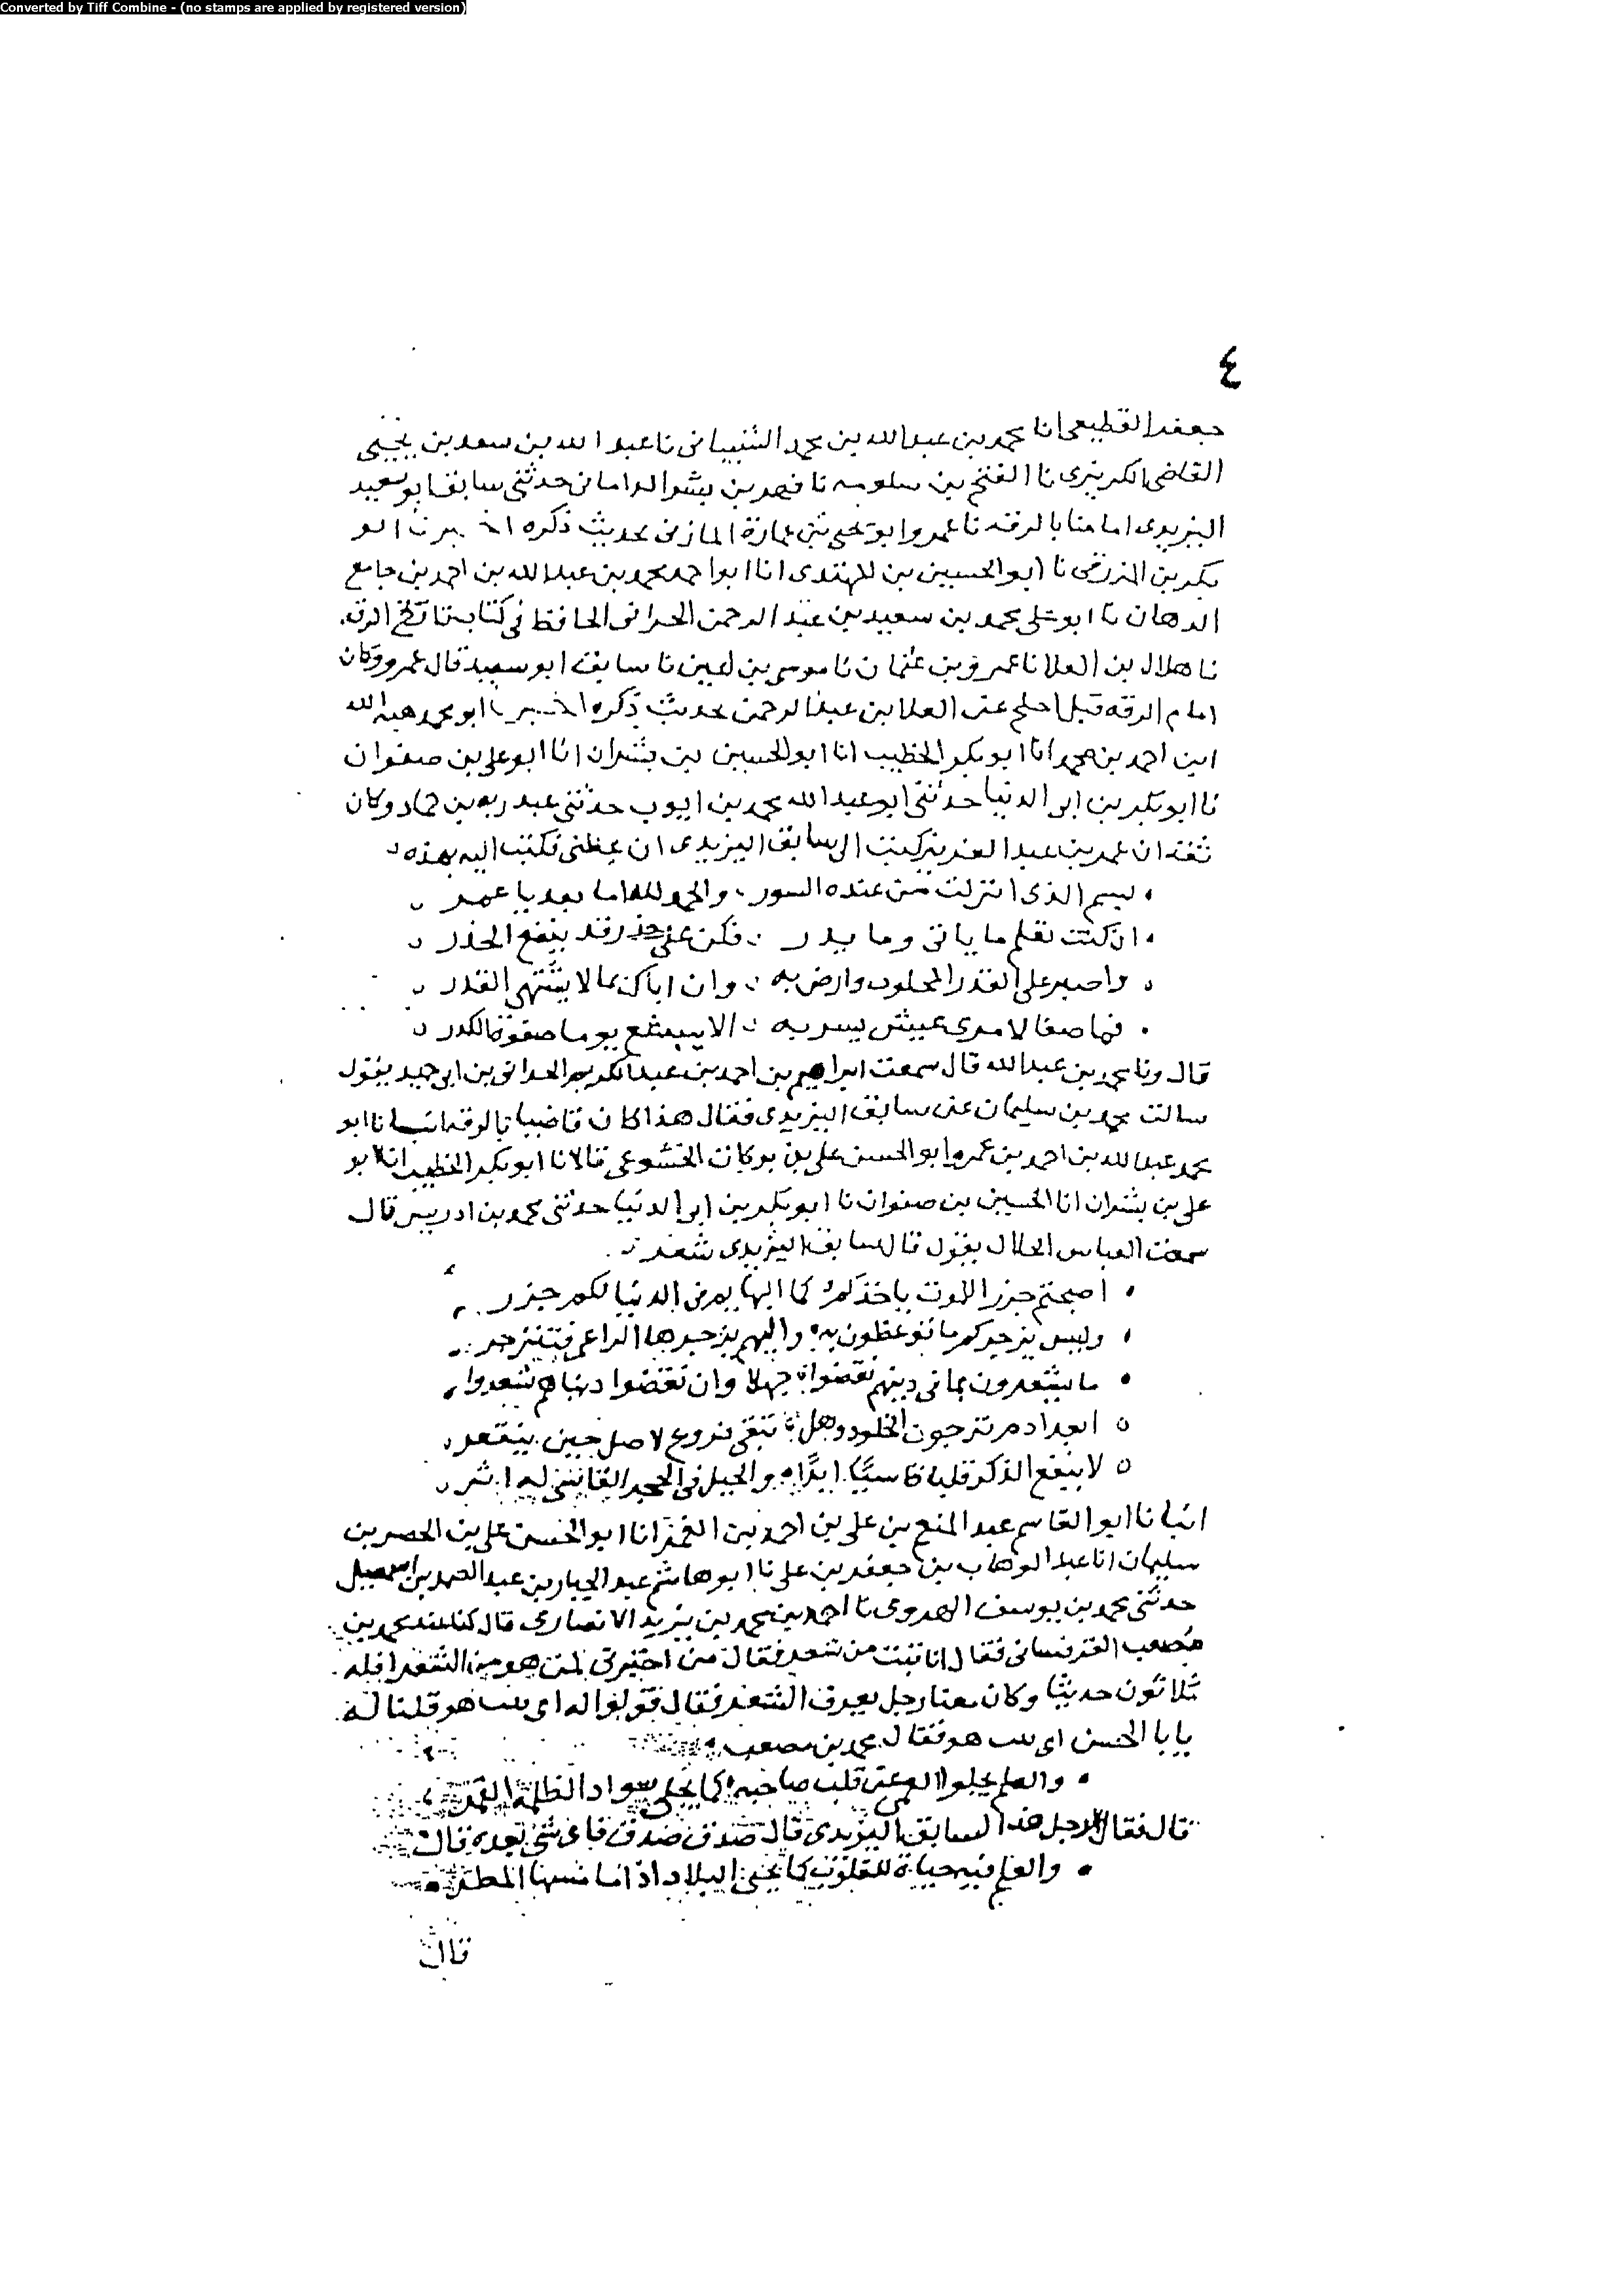 Converted by Tiff Combine - (no stamps are applied by registered version)
٤
جعفر القطيعى انا محمد بن عبدالله بن محمد الشيبانى نا عبد الله بن سعد بن يحيى
القاضى الكريزى نا الفتح بن سلومه نا فهر بن بشر الدامانى حدثنى سابق ابو سعيد
البزيدى امامنا بالرقه نا عمرو ابو يحيى بن عمارة المازنى بحديث ذكره اخبرنا ابو
بكر بن المزرفى نا ابو الحسين بن المهتدى انا ابو احمد محمد بن عبدالله بن احمد بن جامع
الدهان نا ابو على محمد بن سعيد بن عبد الرحمن الحرانى الحافظ فى كتاب تاريخ الرقه
نا هلال بن العلا نا عمرو بن عثمان نا موسى بن اعين نا سابق ابو سعيد قال عمرو وكان
امام الرقه قبل احلح عن العلا بن عبد الرحمن بحديث ذكره اخبرنا ابو محمد هبه الله
ابن احمد بن محمد انا ابو بكر الخطيب انا ابو الحسين بن بشران انا ابو على بن صفوان
نا ابو بكر بن ابى الدنيا حدثنى ابو عبد الله محمد بن ايوب حدثنى عبد ربه بن حماد وكان
ثقه ان عمر بن عبد العزيز كتب الى سابق اليزيدى ان عظنى فكتب اليه بهذه
بسم الذى انزلت من عنده السور والحمد لله اما بعد يا عمر
ان كنت تعلم ما ياتى وما يذر فكن على حذر قد ينفع الحذر
واصبر على القدر المحلوب وارض به وان اتاك بما لا يشتهى القدر
فما صفا لامرى عيش يسر به الا سيتبع يوما صفوة الكدر
قال ونا محمد بن عبدالله قال سمعت ابراهيم بن احمد بن عبد الكريم الحرانى بن ابى حميد يقول
سالت محمد بن سليمان عن سابق البزيدى فقال هذا كان قاضيا بالرقه انبانا ابو
محمد عبدالله بن احمد بن عمر وابو الحسن على بن بركات الخشوعى قالا نا ابو بكر الخطيب انا ابو
على بن بشران انا الحسين بن صفوان نا ابو بكر بن ابى الدنيا حدثنى محمد بن ادريس قال
سمعت العباس الخلال يقول قال سابق اليزيدى شعر
اصبحتم جزر الموت ياخذكم كما البهايم فى الدنيا لكم جزر
وليس يزجركم ما توعظون به والبهم يزجرها الراعى فتنزجر
ما يشعرون بما فى دينهم نقصوا جهلا وان نقصوا دنياهم شعروا
ابعد ادم ترجون الخلود وهل تبقى فروع لاصل حين ينقعر
لا ينفع الذكر قلبا قاسيا ابدا والحبل فى الحجر القاسى له اثر
انبانا ابو القاسم عبد المنعم بن على بن احمد بن الغمر انا ابو الحسن على بن الخضر بن
سليمان انا عبد الوهاب بن جعفر بن على نا ابو هاشم عبد الجبار بن عبد الصمد بن اسمعيل
حدثنى محمد بن يوسف الهروى نا احمد بن محمد بن يزيد الانصارى قال كنا عند محمد بن
مصعب القرقسانى فقال انا بيت من شعر فقال من اخبرنى لمن هو من الشعرا فله
ثلاثون حديثا وكان معنا رجل يعرف الشعر فقال قولوا له اى بيت هو قلنا له
يابا الحسن اى بيت هو فقال محمد بن مصعب
والعلم يجلوا العمى عن قلب صاحبه كما يجلى سواد الظلمة القمر
قال فقال الرجل هذا لسابق البزيدى قال صدق صدق فاى شى بعده قال
والعلم فيه حياة للقلوب كما تحيى البلاد اذا ما مسها المطر
قال